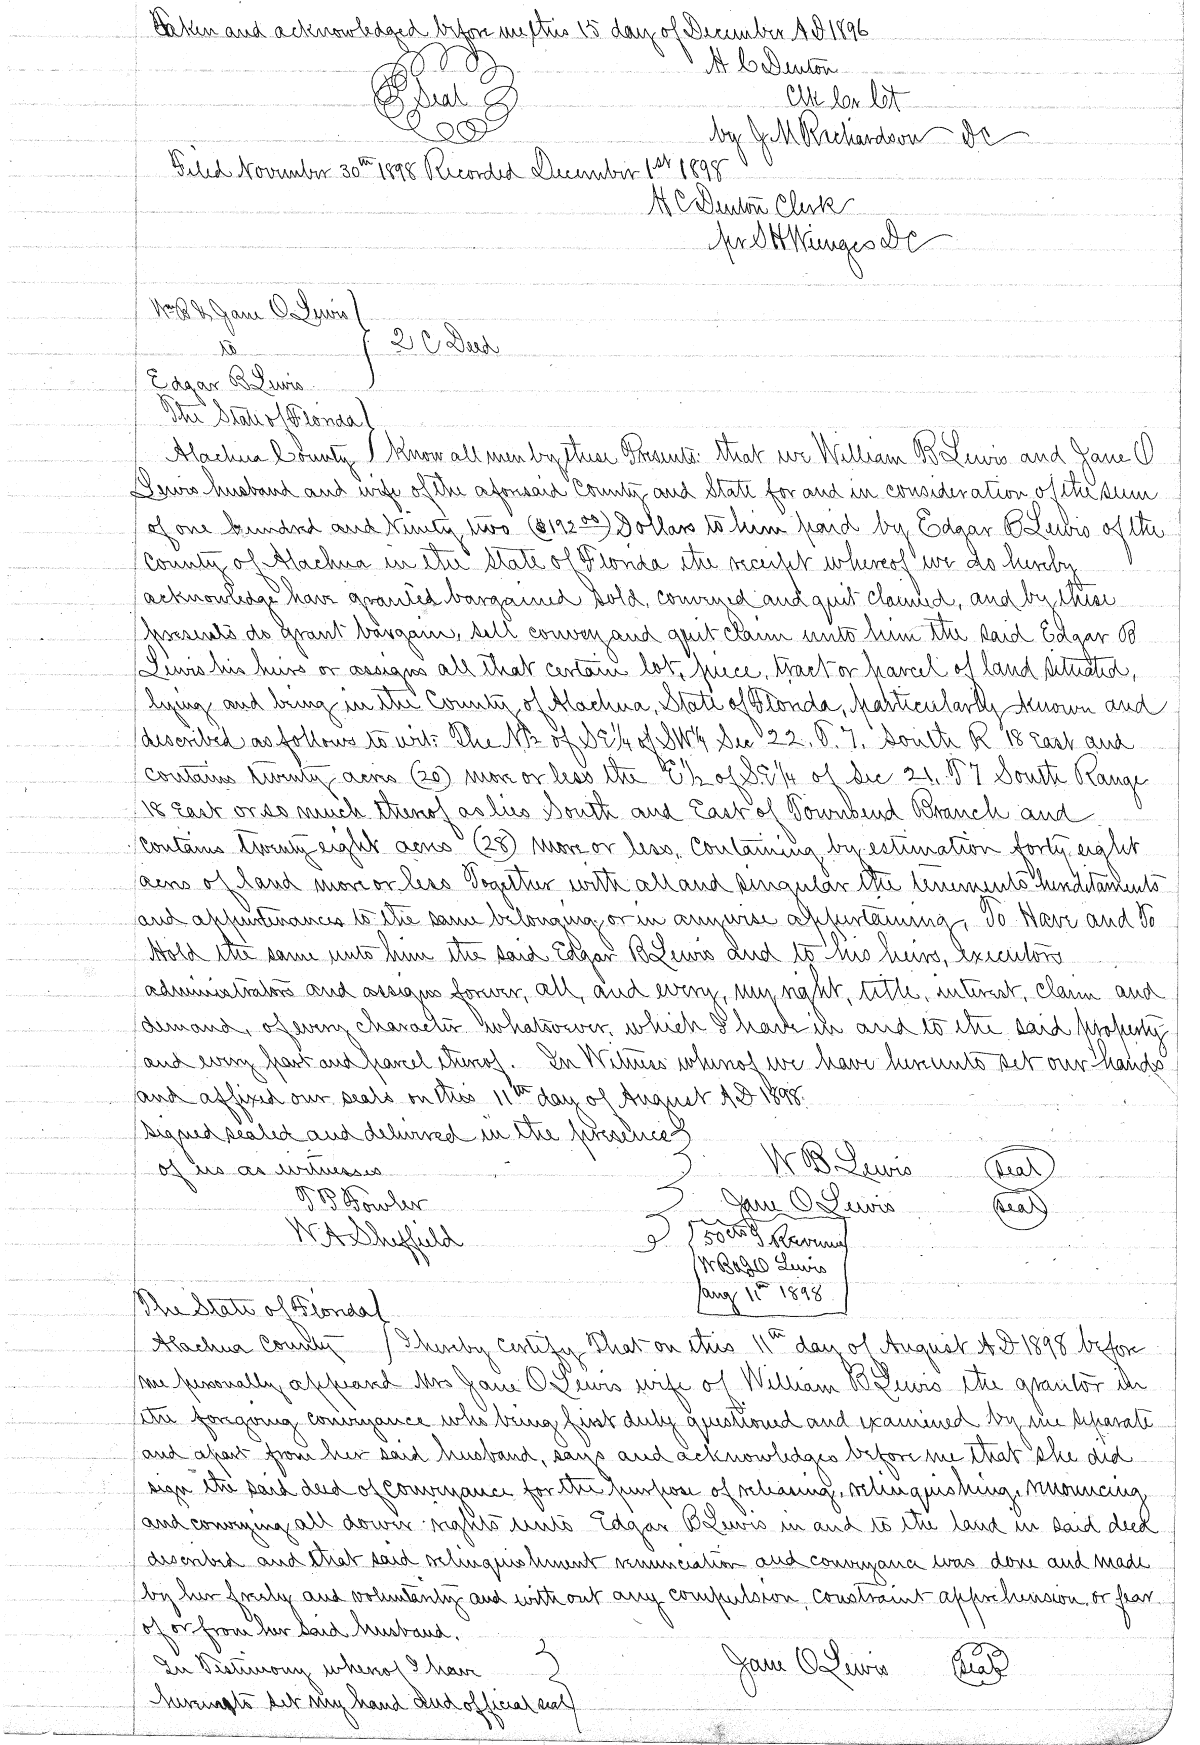 Taken and acknowledged before me this 15 day of December A D 1896
H C Denton
Clk Cir Ct
Seal
by J M Richardson D C
Filed November 30th 1898 Recorded December 1st 1898
H C Denton Clerk
per S H Wienges D C
Wm B & Jane O Lewis
to
2 C Deed
Edgar B Lewis
The State of Florida
Alachua County Know all men by these Presents: that we William B Lewis and Jane O
Lewis husband and wife of the aforesaid County and State for and in consideration of the sum
of one hundred and Ninety two ($192.00) Dollars to him paid by Edgar B Lewis of the
County of Alachua in the State of Florida the receipt whereof we do hereby
acknowledge have granted bargained sold, conveyed and quit claimed, and by these
presents do grant bargain, sell convey and quit claim unto him the said Edgar B
Lewis his heirs or assigns all that certain lot, piece, tract or parcel of land situated,
lying and being in the County of Alachua, State of Florida, particularly known and
described as follows to wit: The N½ of SE¼ of SW¼ Sec 22. T. 7. South R 18 East and
contains twenty acres (20) more or less the E½ of SE¼ of Sec 21. T 7 South Range
18 East or so much thereof as lies South and East of Townsend Branch and
contains twenty eight acres (28) more or less, containing by estimation forty eight
acres of land more or less Together with all and singular the tenements hereditaments
and appurtenances to the same belonging or in anywise appertaining, To Have and To
Hold the same unto him the said Edgar B Lewis and to his heirs, executors
administrators and assigns forever, all, and every, my right, title, interest, claim and
demand, of every character whatsoever, which I have in and to the said property
and every part and parcel thereof. In Witness whereof we have hereunto set our hands
and affixed our seals on this 11th day of August A D 1898.
Signed sealed and delivered in the presence
of us as witnesses W B Lewis Seal
T B Fowler Jane O Lewis Seal
W A Sheffield 50cts I Revenue
W B & J O Lewis
Aug 11th 1898
The State of Florida
Alachua County I hereby certify That on this 11th day of August A D 1898 before
me personally appeared Mrs Jane O Lewis wife of William B Lewis the grantor in
the foregoing conveyance who being first duly questioned and examined by me separate
and apart from her said husband, says and acknowledges before me that she did
sign the said deed of conveyance for the purpose of releasing, relinquishing, renouncing
and conveying all dower rights unto Edgar B Lewis in and to the land in said deed
described and that said relinquishment renunciation and conveyance was done and made
by her freely and voluntarily and with out any compulsion, constraint apprehension, or fear
of or from her said husband.
In Testimony whereof I have Jane O Lewis Seal
hereunto set my hand and official seal